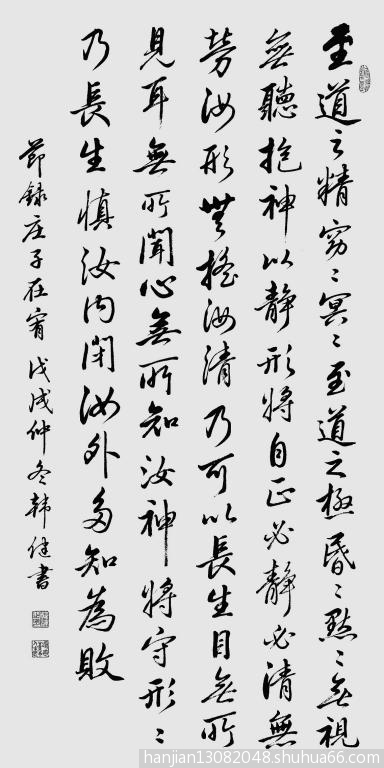 至道之精窈〻冥〻至道之極昏〻默〻無視
無聽抱神以静形將自正必静必清無
勞汝形無搖汝清乃可以長生目無所
見耳無所聞心無所知汝神將守形〻
乃長生慎汝内閉汝外多知為敗
節録庄子在宥戊戌仲冬韩健書
hanjian13082048.shuhua66.com